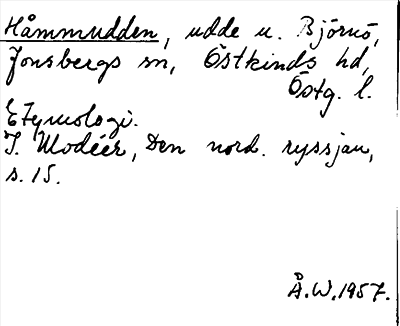 Håmmudden, udde u. Björnö,
Jonsbergs sn, Östkinds hd,
Östg. l.
Etymologi.
I. Modéer, Den nord. ryssjan,
s. 15.
Å.W. 1957.